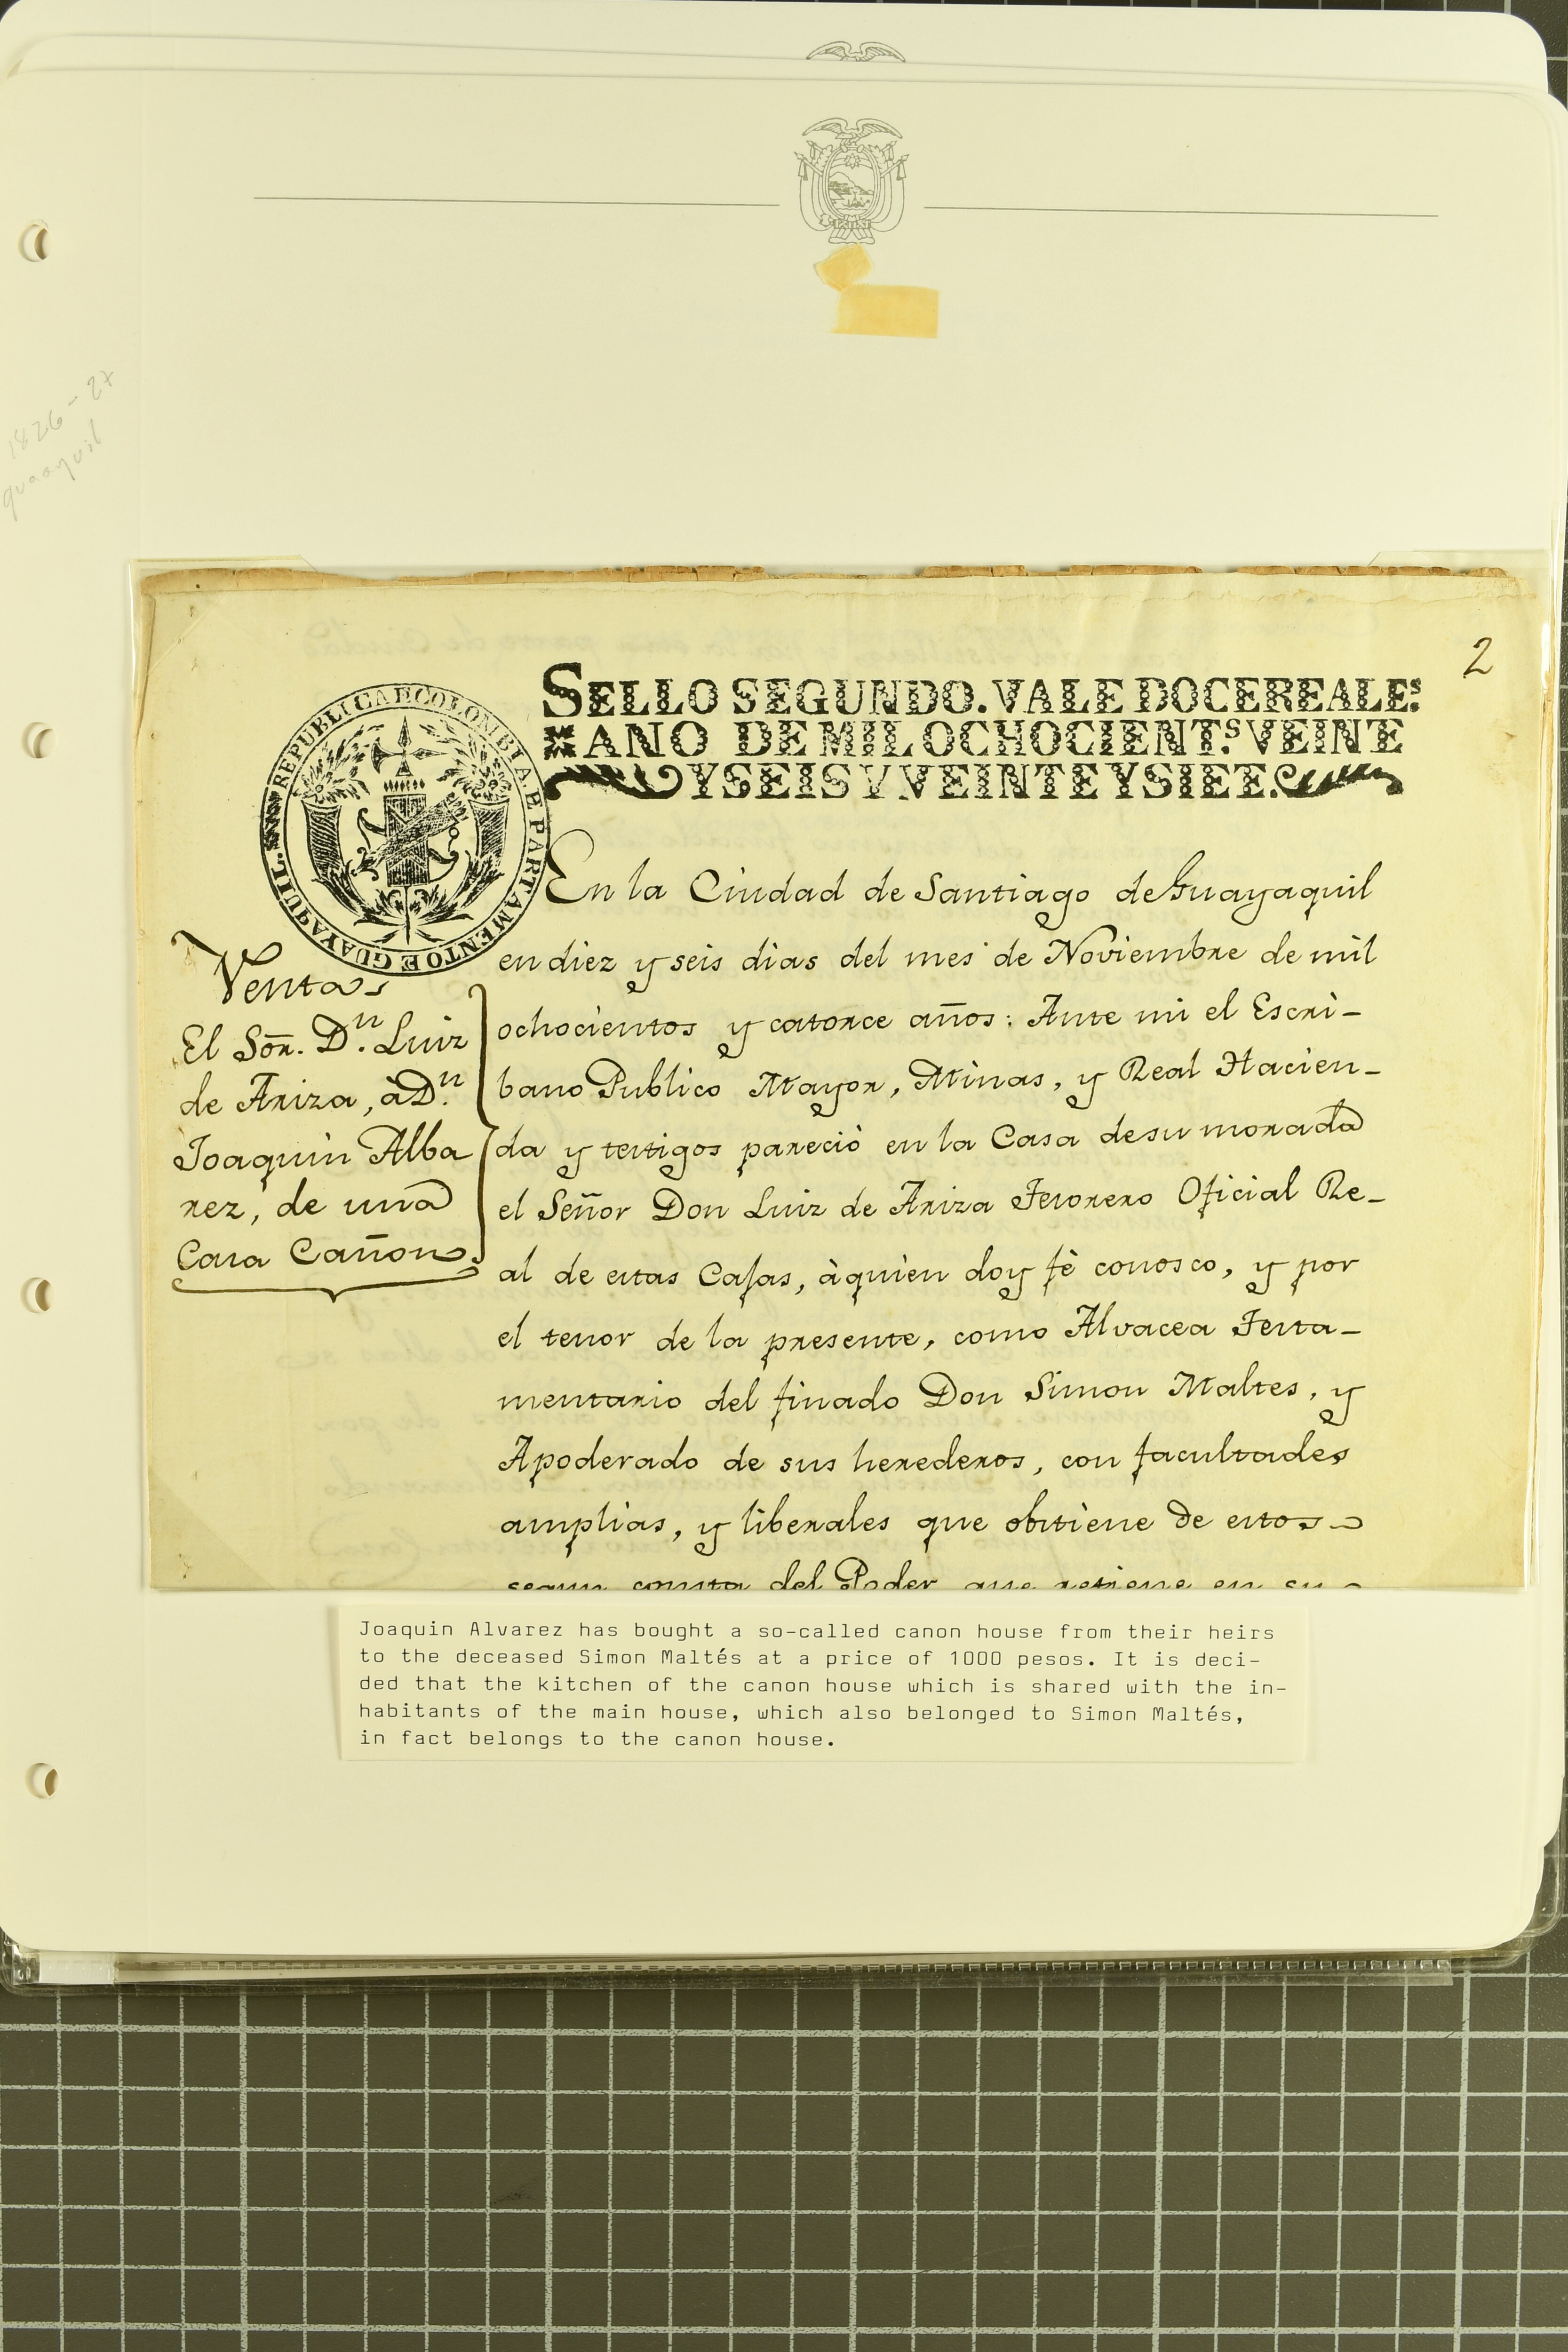 1826-27
guaayuil
2
SELLO SEGUNDO. VALE DOCE REALE.s
AÑO DE MIL OCHOCIENT.s VEINTE
Y SEIS Y VEINTE Y SIETE.
REPUBLICA E COLOMBIA. E PARTAMENTO E GUAYAQUIL.
Venta
El Sõr. D.n Luiz
de Ariza, à D.n
Joaquin Alba
rez, de una
Casa Cañon.
En la Ciudad de Santiago de Guayaquil
en diez y seis dias del mes de Noviembre de mil
ochocientos y catorce años: Ante mi el Escri-
bano Publico Mayor, Minas, y Real Hacien-
da y testigos pareciò en la Casa de su morada
el Señor Don Luiz de Ariza Tesorero Oficial Re-
al de estas Cajas, à quien doy fè conosco, y por
el tenor de la presente, como Alvacea Testa-
mentario del finado Don Simon Maltes, y
Apoderado de sus herederos, con facultades
amplias, y liberales que obtiene de estos
segun consta del Poder que retiene en su
Joaquin Alvarez has bought a so-called canon house from their heirs
to the deceased Simon Maltés at a price of 1000 pesos. It is deci-
ded that the kitchen of the canon house which is shared with the in-
habitants of the main house, which also belonged to Simon Maltés,
in fact belongs to the canon house.